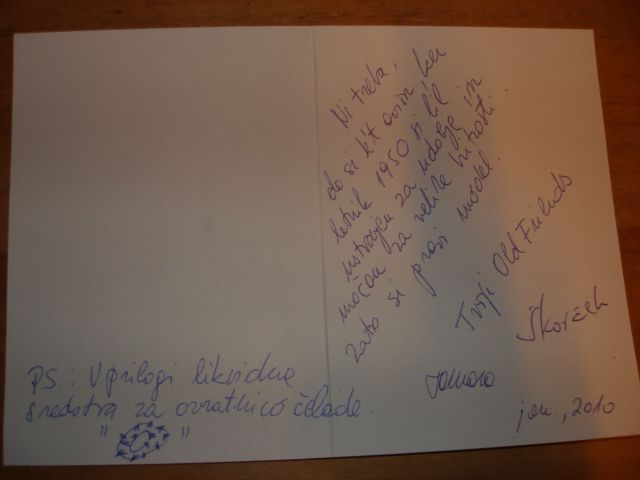 Ni treba,
da si kit ovir, ker
letnik 1950 si bil
ustvarjen za udobje in
močan za velike hitrosti.
Zato si pravi model.
Tvoji Old Friends
Škorček
Tamara
jan., 2010
PS.: V prilogi likvidna
sredstva za ovratnico čelade.
" "